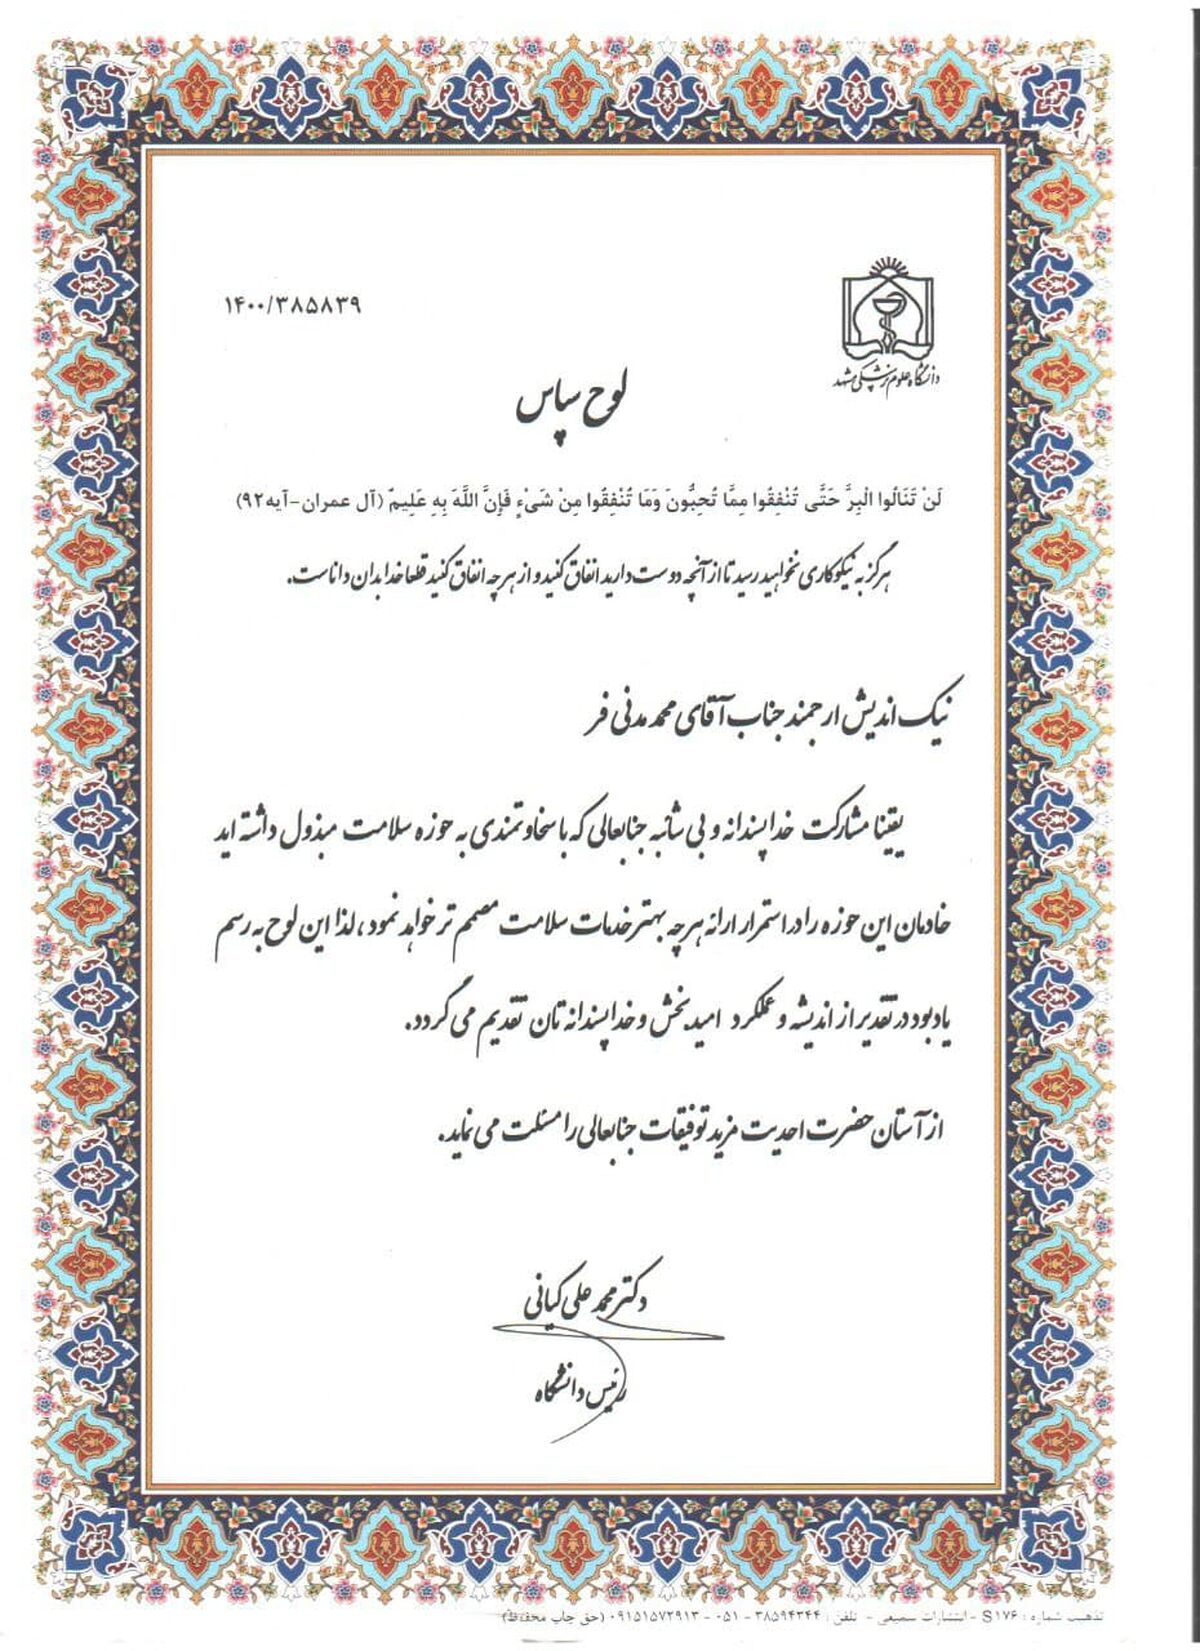 ۱۴۰۰/۳۸۵۸۳۹
دانشگاه علوم پزشکی مشهد
لوح سپاس
لَنْ تَنَالُوا الْبِرَّ حَتَّى تُنْفِقُوا مِمَّا تُحِبُّونَ وَمَا تُنْفِقُوا مِنْ شَيْءٍ فَإِنَّ اللَّهَ بِهِ عَلِيمٌ (آل عمران-آیه۹۲)
هرگز به نیکوکاری نخواهید رسید تا از آنچه دوست دارید انفاق کنید و از هر چه انفاق کنید قطعا خدا بدان داناست.
نیک اندیش ارجمند جناب آقای محمد مدنی فر
یقینا مشارکت خداپسندانه و بی شائبه جنابعالی که با سخاوتمندی به حوزه سلامت مبذول داشته اید
خادمان این حوزه را در استمرار ارائه هر چه بهتر خدمات سلامت مصمم تر خواهد نمود، لذا این لوح به رسم
یادبود در تقدیر از اندیشه و عملکرد امیدبخش و خداپسندانه تان تقدیم می گردد.
از آستان حضرت احدیت مزید توفیقات جنابعالی را مسئلت می نماید.
دکتر محمد علی کیانی
رئیس دانشگاه
تذهیب شماره : S۱۷۶ - انتشارات سمیعی - تلفن : ۳۸۵۹۴۳۴۴ - ۰۵۱ - ۰۹۱۵۱۵۷۲۹۱۳ (حق چاپ محفوظ)